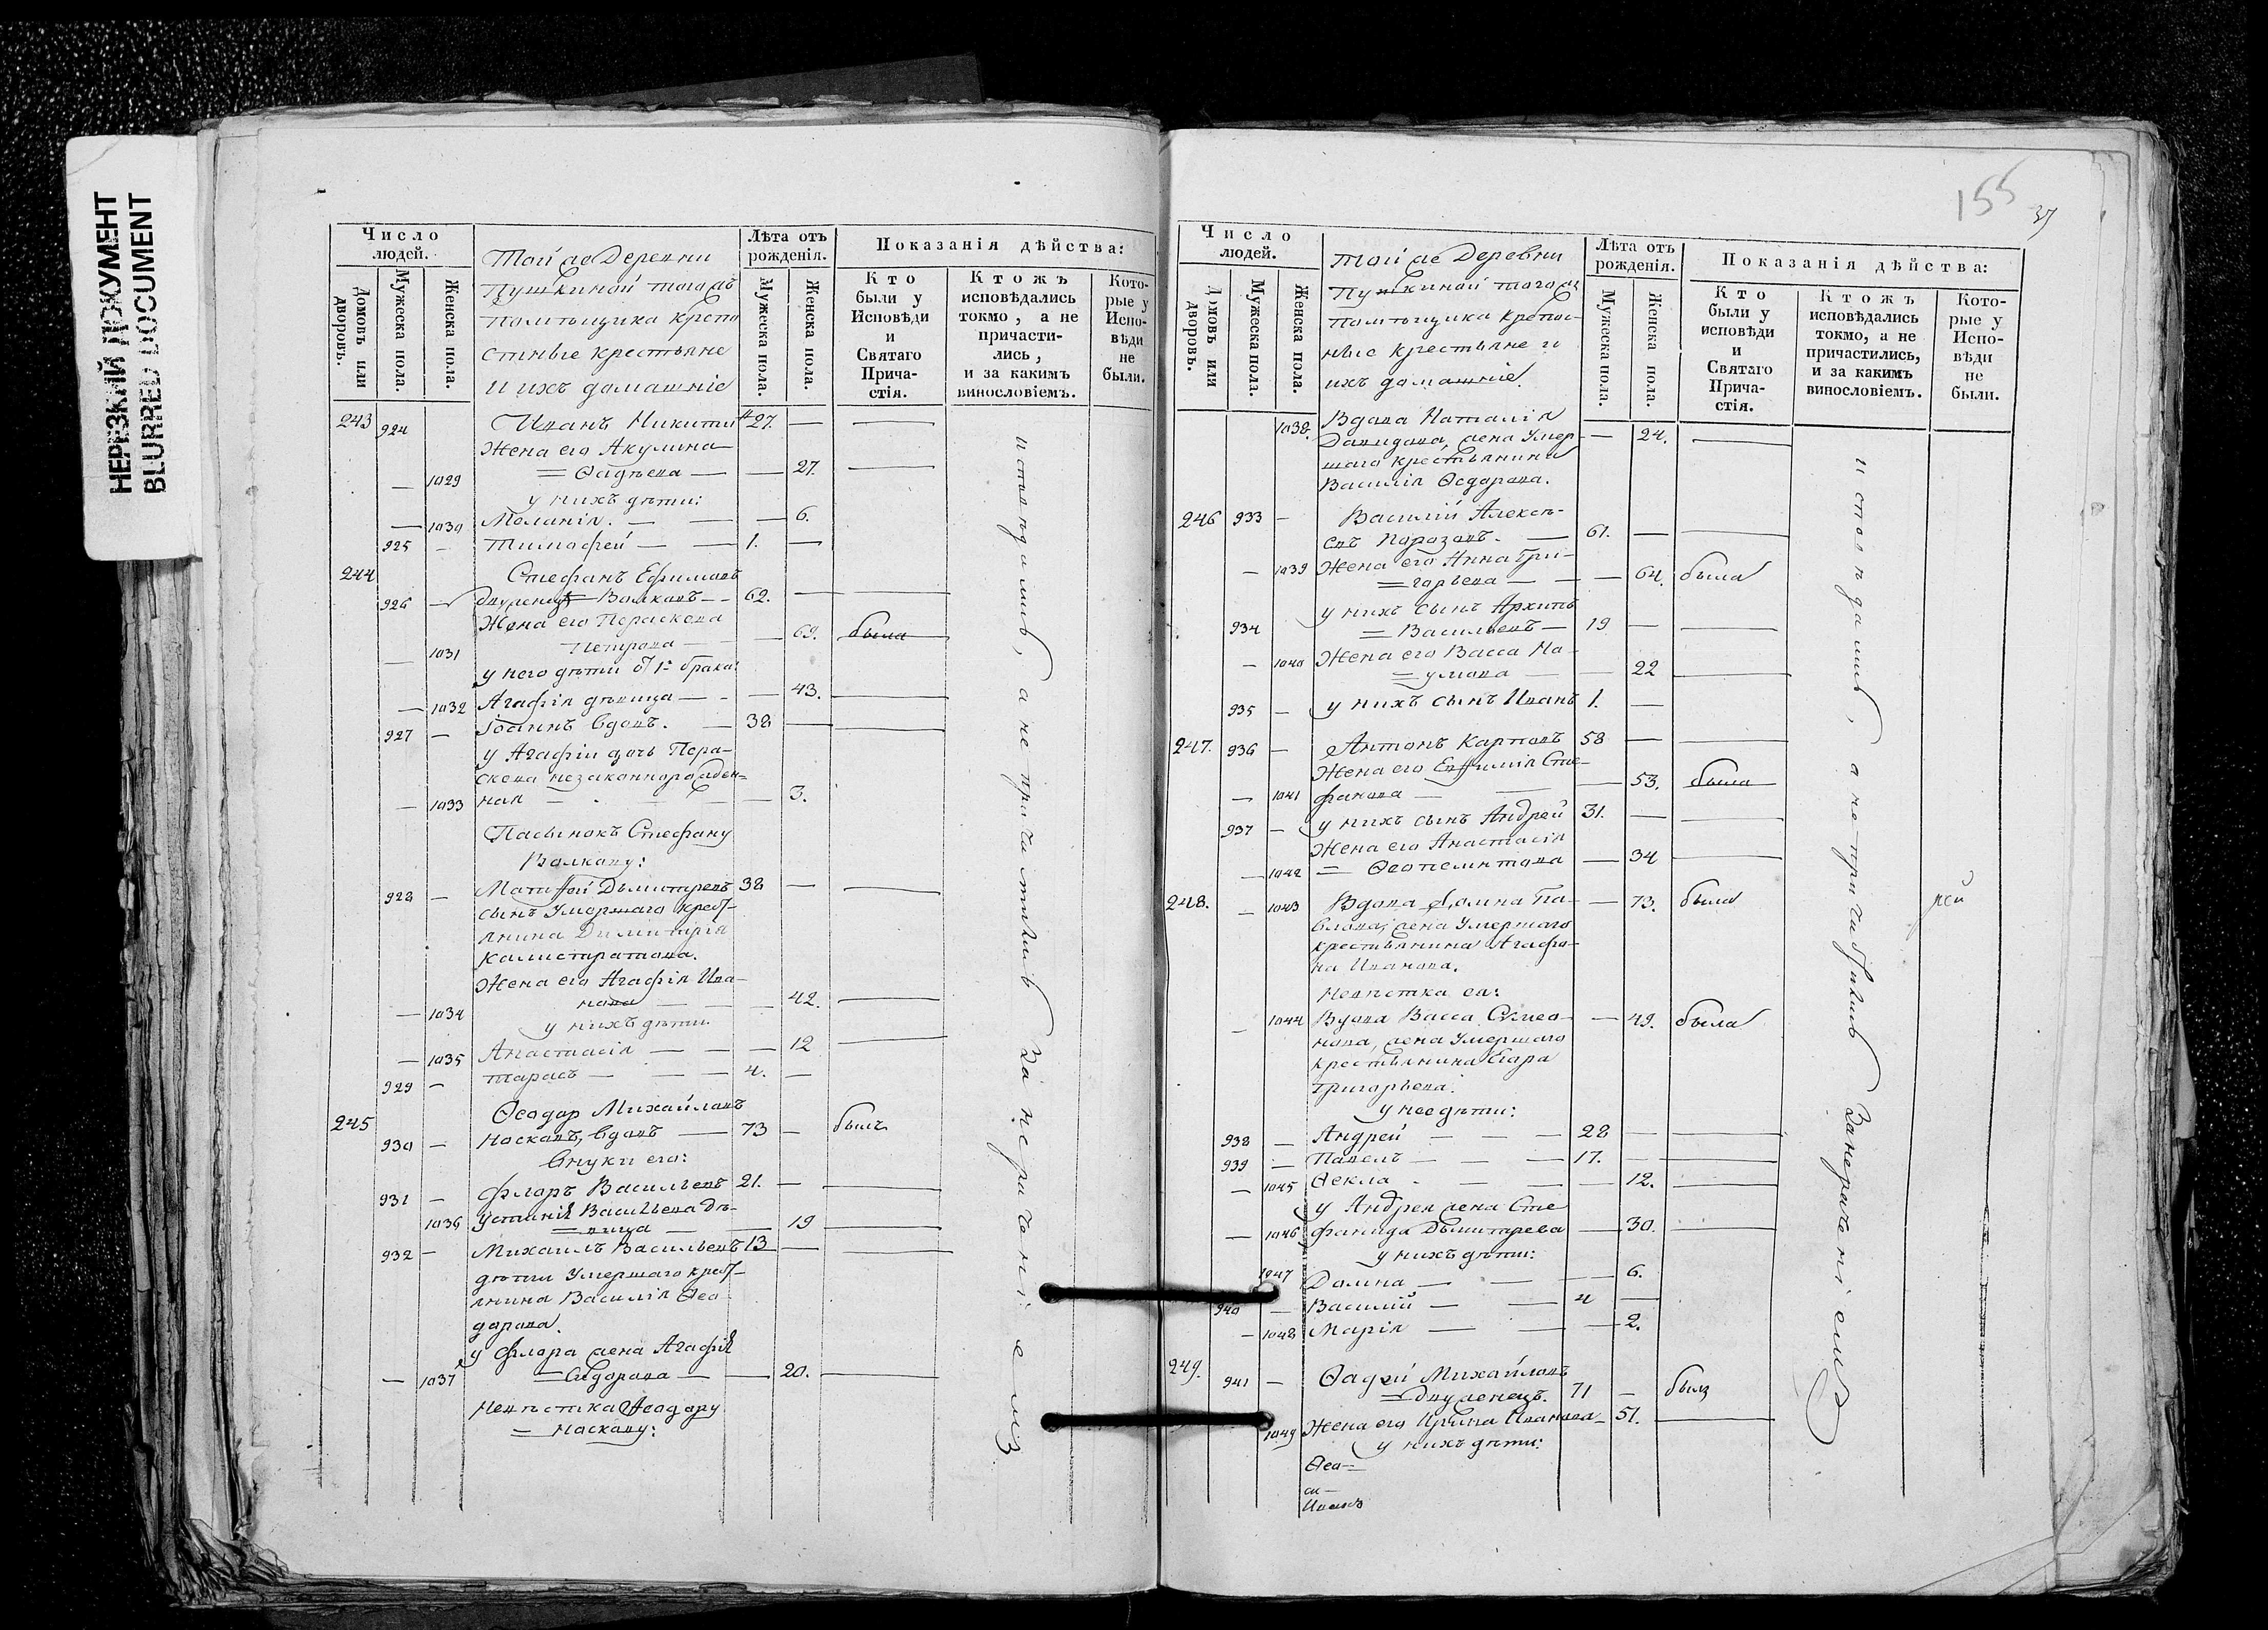 НЕРІЗКИЙ ДОКУМЕНТ
BLURRED DOCUMENT
Число людей.
Домовъ или дворовъ.
Мужеска пола.
Женска пола.
Той же Деревни
Пушкиной тогожъ
помѣщика крепо
стные крестьяне
и ихъ домашніе
Лѣта отъ рожденія.
Мужеска пола.
Женска пола.
Показанія дѣйства:
Кто были у Исповѣди и Святаго Прича- стія.
Ктожъ исповѣдались токмо, а не причасти- лись, и за какимъ винословіемъ.
Кото- рые у Испо- вѣди не были.
243 924 Иванъ Никитин 27. —
Жена его Акулина
— 1029 = Ѳадѣева — — 27. —
у нихъ дѣти:
— 1030 Меланія. — — — 6.
925 — Тимофей — — 1. —
244 Стефанъ Ефимовъ
926 — двуженецъ Волковъ — 62. — —
Жена его Параскева
— 1031 Петрова — — 69. была
у него дѣти от 1го брака:
— 1032 Агафія дѣвица — — — 43. —
927 — Іоаннъ вдовъ. — 38 — —
у Агафіи дочь Пара-
скева незаконнорожден-
— 1033 ная — — — 3.
Пасынокъ Стефану
Волкову:
928 — Матѳей Дмитревъ 38 — —
сынъ Умершаго крест-
янина Димитрія
Калистратова.
Жена его Агафія Ива-
— 1034 нова — — 42. —
у нихъ дѣти
— 1035 Анастасія — — — 12 —
929 — Тарасъ — — — 4. —
245 Ѳеодор Михайловъ
930 — Носковъ, вдовъ — 73 — былъ
Внуки его:
931 — Флоръ Васильевъ 21. — —
1036 Устинія Васильева дѣ-
= вица — — 19 —
932 — Михаилъ Васильевъ 13 — —
дѣти Умершаго крест-
янина Василія Ѳео
дорова.
у Флора жена Агафія
— 1037 = Сидорова — — 20. —
Невѣстка Ѳеодору
= Носкову:
исповѣдались, а не причастились за нераченіемъ
155
37
Число людей.
Домовъ или дворовъ.
Мужеска пола.
Женска пола.
Той же Деревни
Пушкиной тогожъ
помѣщика крепос-
ные крестьяне и
ихъ домашніе.
Лѣта отъ рожденія.
Мужеска пола.
Женска пола.
Показанія дѣйства:
Кто были у исповѣди и Святаго Прича- стія.
Ктожъ исповѣдались токмо, а не причастились, и за какимъ винословіемъ.
Кото- рые у Испо- вѣди не были.
1038. Вдова Наталія
Давидова, жена Умер- — 24. —
шаго крестьянина
Василія Ѳедорова.
246 933 — Василій Алексѣ-
евъ — 61. — —
— 1039 Жена его Анна Гри-
= горьева — — — 64. была
у нихъ сынъ Архипъ
934 = Васильевъ — 19 — —
— 1040 Жена его Васса На-
= умова — — 22 —
935 — у нихъ сынъ Иванъ 1. —
247. 936 — Антонъ Карповъ 58 — —
Жена его Евфимія Сте-
— 1041 фанова — — 53. была
937 — у нихъ сынъ Андрей 31. — —
Жена его Анастасія
— 1042 = Ѳеопемптова — 34 —
248. — 1043 Вдова Домна Па- — 73. была
влова, жена Умершаго
крестьянина Агафо-
на Иванова.
Невѣстка ея:
— 1044 Вдова Васса Симео- — 49. была
нова, жена Умершаго
крестьянина Егора
Григорьева.
у нее дѣти:
938 — Андрей — — — 28 — —
939 — Павелъ — — — 17. — —
— 1045 Ѳекла — — — 12. —
у Андрея жена Сте
— 1046 фанида Дмитрева — 30. —
у нихъ дѣти:
1047 Домна — — — 6.
940 — Василий — — 4 —
— 1048 Марія — — — 2.
249. 941 — Ѳадей Михайловъ
= двуженецъ. 71 — былъ
1049 Жена его Ирина Иванова — 51. —
у нихъ дѣти:
Ѳео=
Иванъ
исповѣдались, а не причастились За нераченіемъ
рей